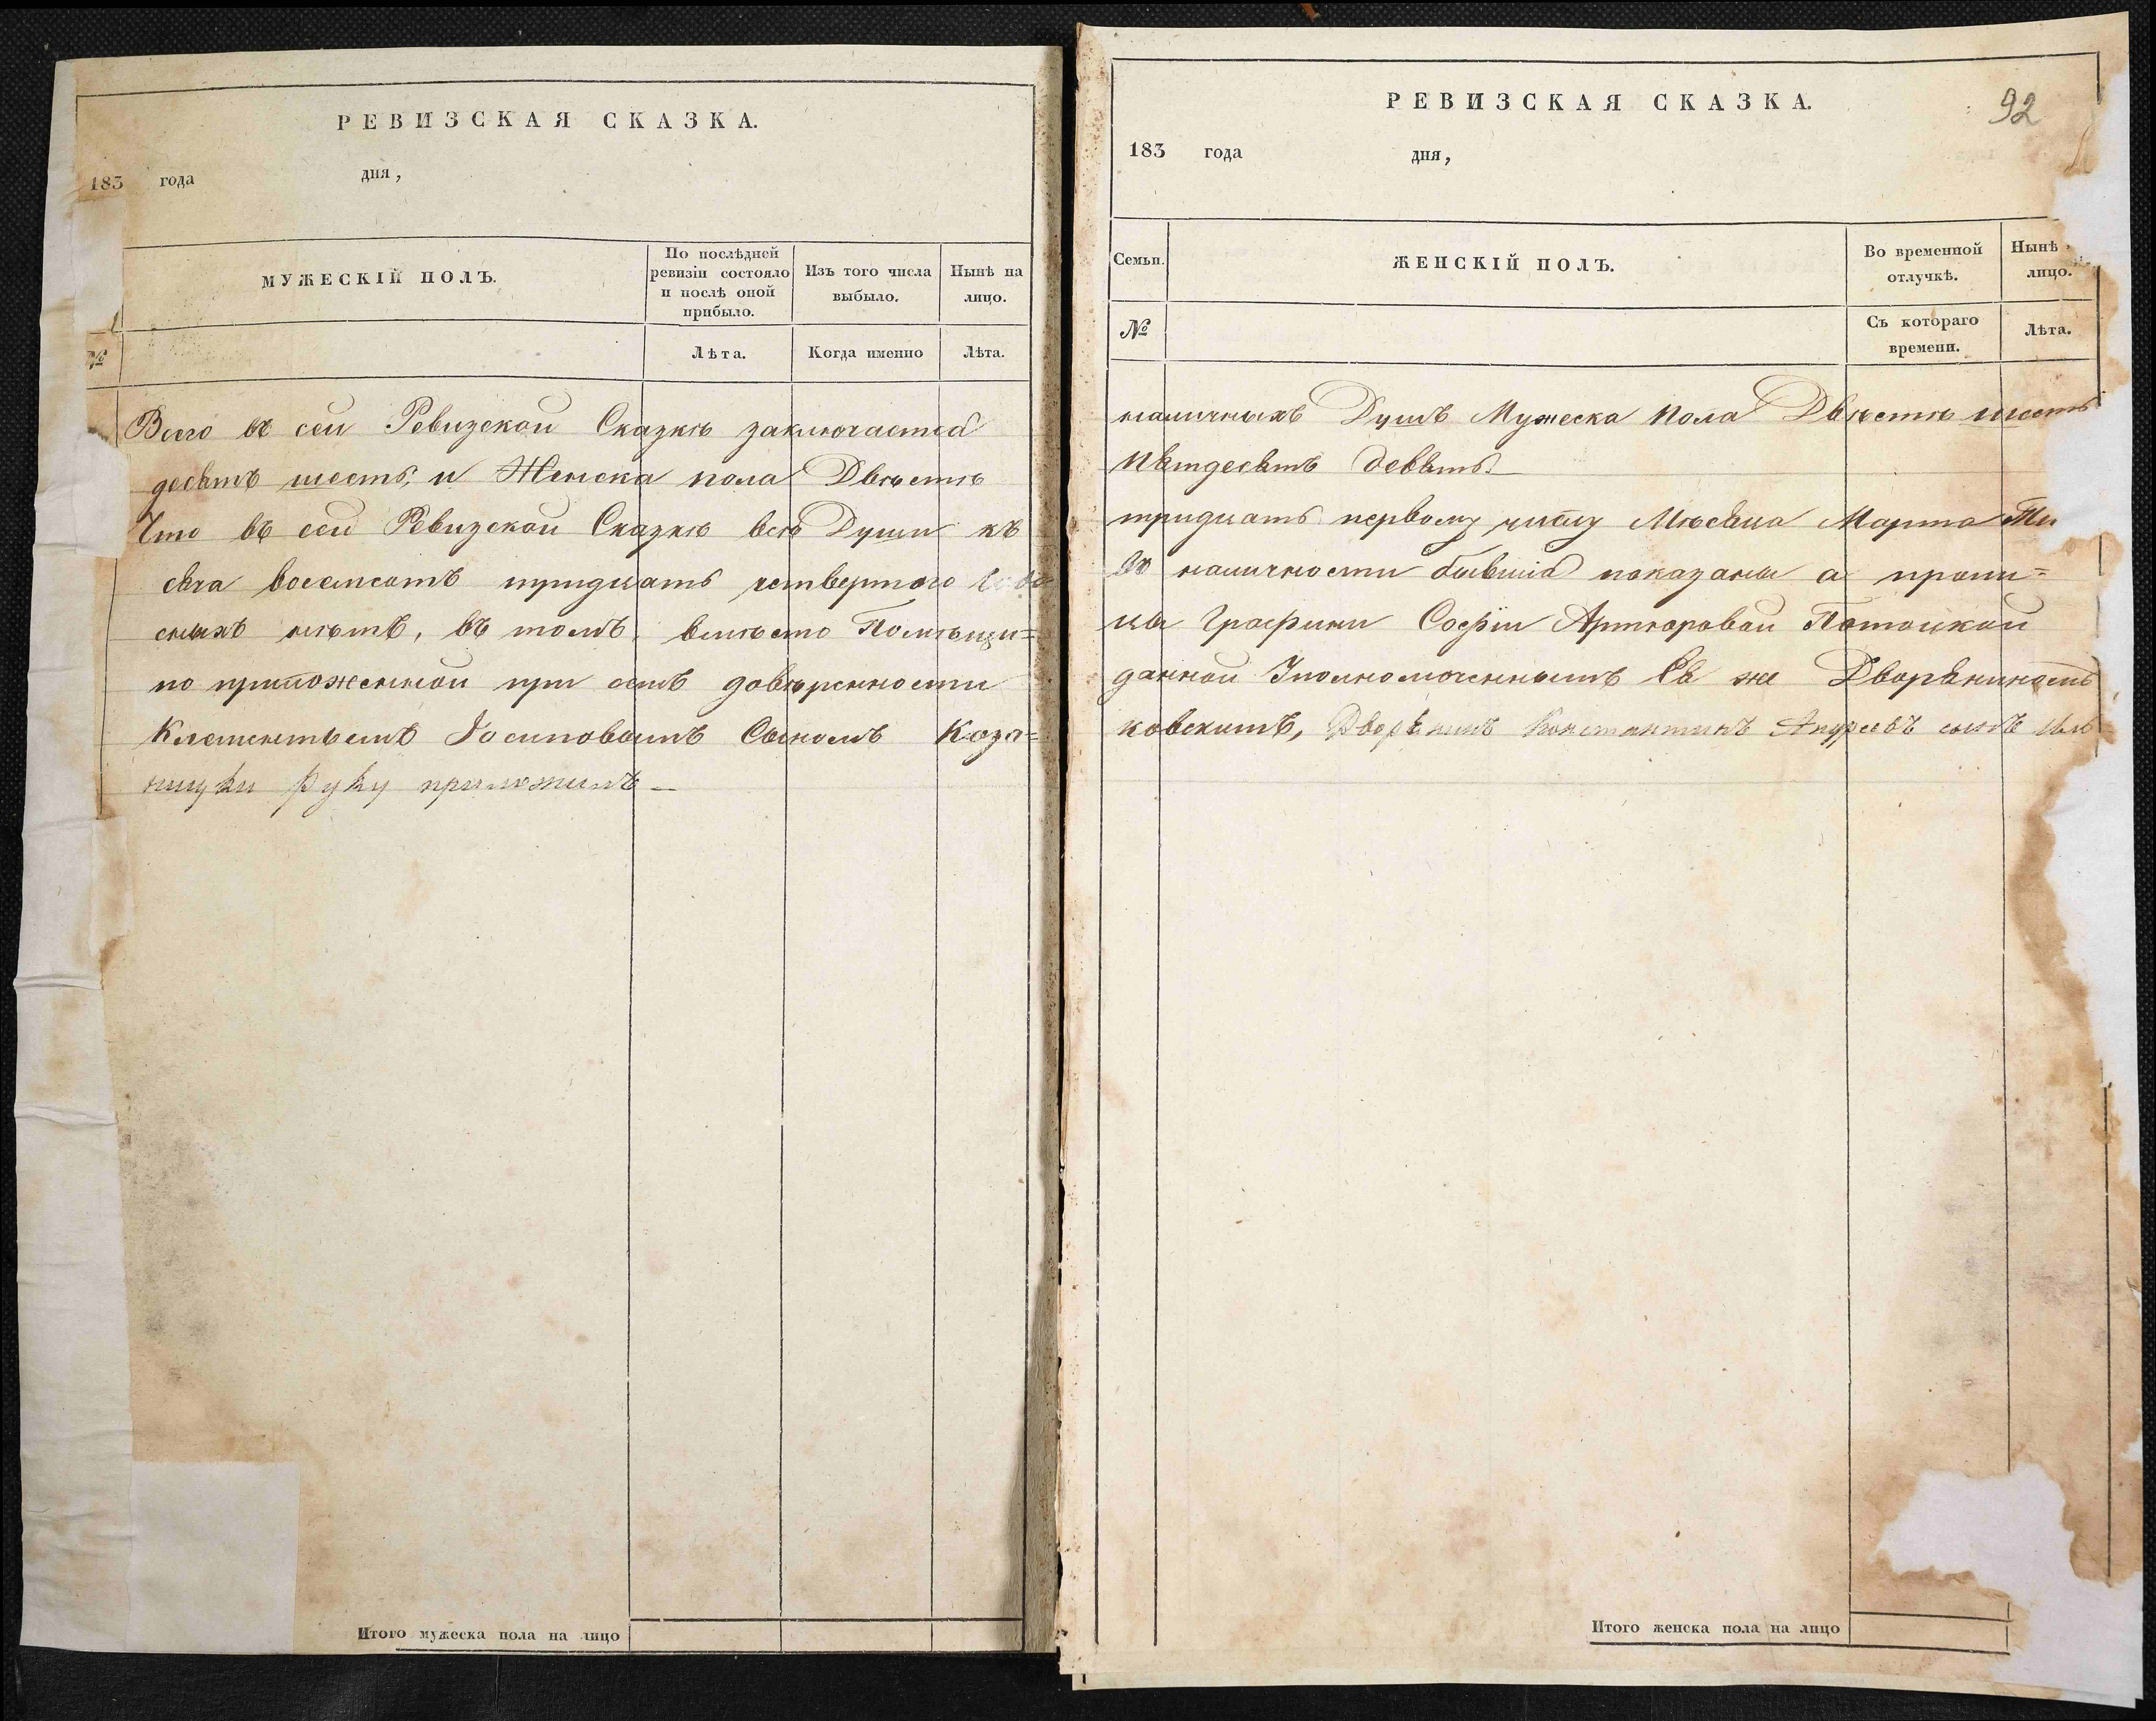 РЕВИЗСКАЯ СКАЗКА.
183 года дня,
МУЖЕСКІЙ ПОЛЪ.
По послѣдней
ревизіи состояло
и послѣ оной
прибыло.
Изъ того числа
выбыло.
Нынѣ на
лицо.
№
Лѣта.
Когда именно
Лѣта.
Всего въ сей Ревизской Сказкѣ заключается
десятъ шесть, и Женска пола Двѣстѣ
Что въ сей Ревизской Сказкѣ всѣ Души къ
сяча восемсотъ тридцать четвертого Года
сныхъ нѣтъ, въ томъ, вмѣсто Помѣщи=
по приложенной при семъ довѣренности
Клементьемъ Іосиповымъ Сыномъ Коза=
ницки руку приложилъ
Итого мужеска пола на лицо
РЕВИЗСКАЯ СКАЗКА.
92
183 года дня,
Семьи.
ЖЕНСКІЙ ПОЛЪ.
Во временной
отлучкѣ.
Нынѣ
лицо.
№
Съ котораго
времени.
Лѣта.
наличныхъ Душъ Мужеска пола Двѣстѣ шесть
пятдесятъ девять.
тридцать первому числу Мѣсяца Марта Ты
въ наличности бывшія показаны а пропи=
цы Графини Софіи Артюровой Потоцкой
данной Уполномоченнымъ Ея же Дворяниномъ
ковскимъ, Дворянинъ Константинъ Андреевъ сынъ Иль
Итого женска пола на лицо